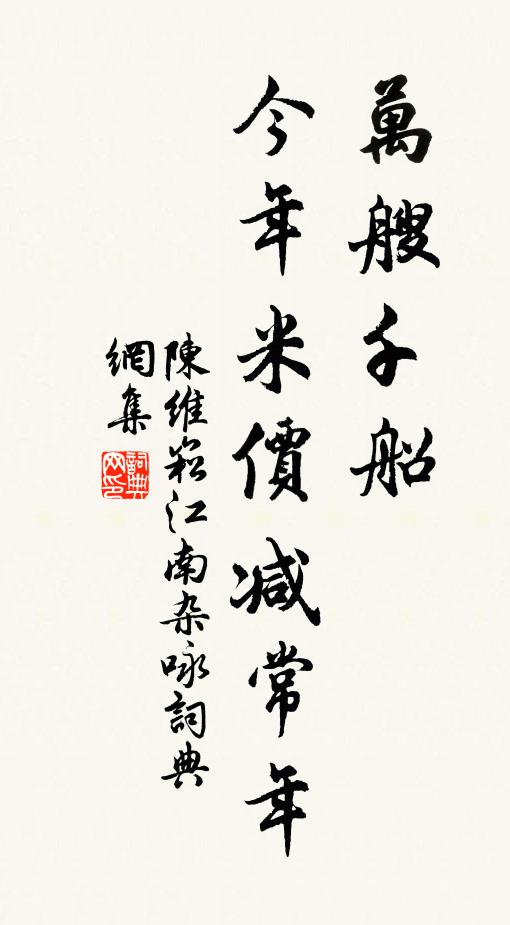 萬艘千船
今年米價減常年
陳維崧江南杂咏詞典
網集
詞典
网印